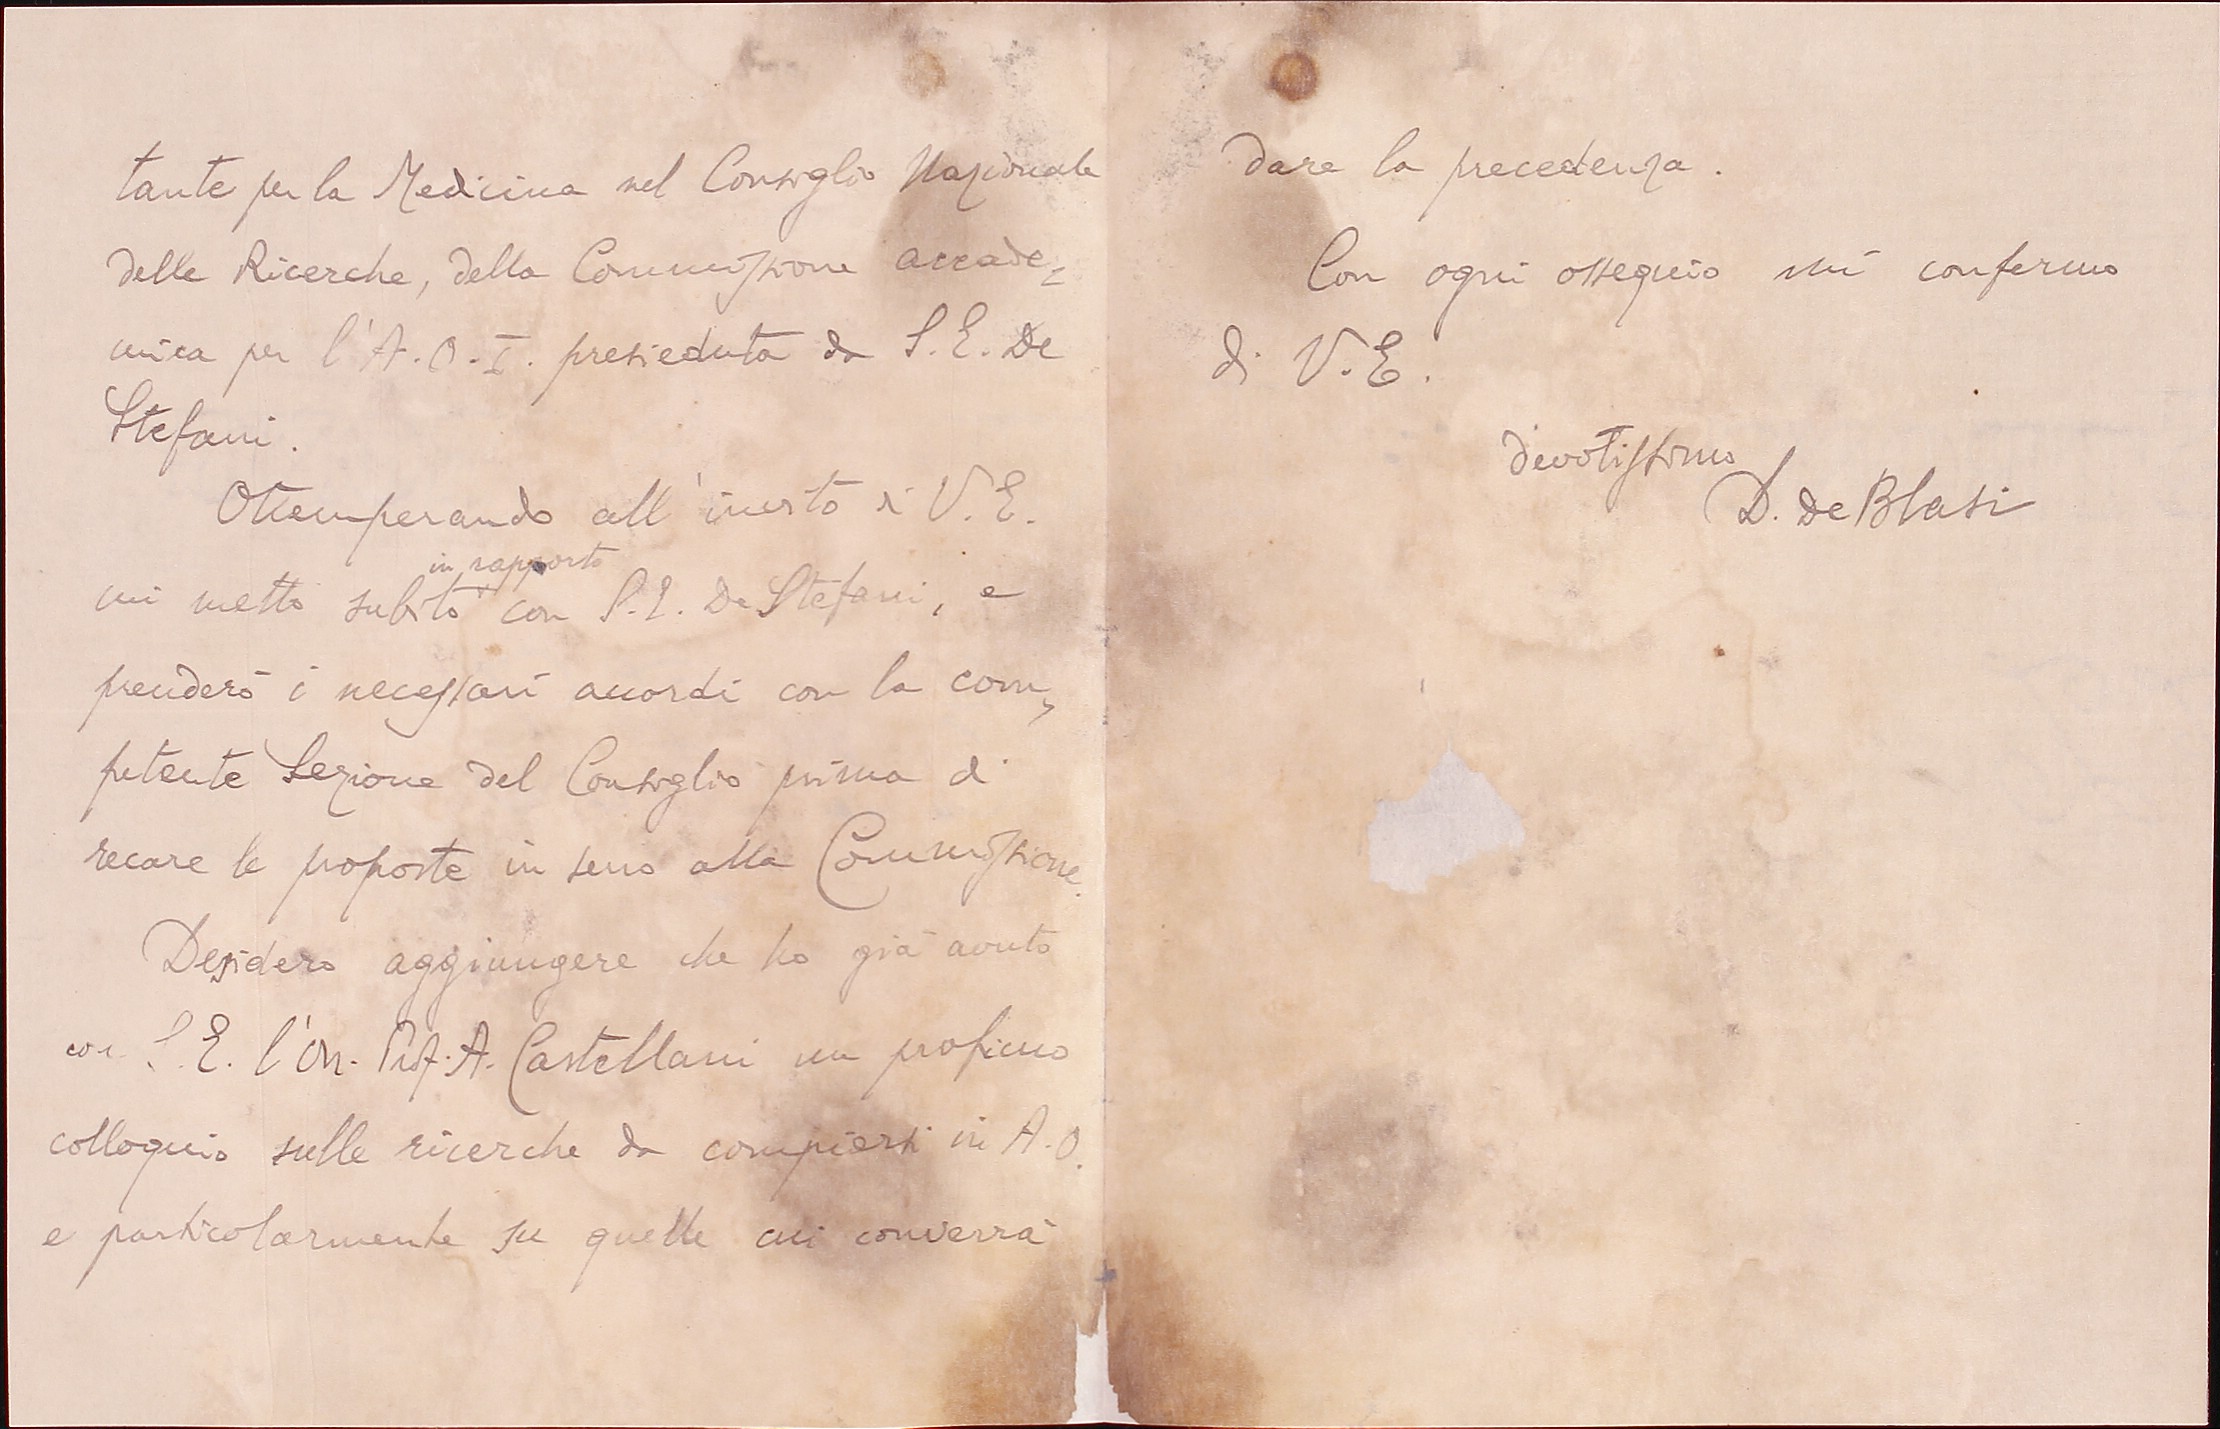 tante per la Medicina nel Consiglio Nazionale
delle Ricerche, della Commissione accade-
mica per l'A.O.I. presieduta da S.E. De
Stefani.
Ottemperando all'invito di V.E.
in rapporto
mi metto subito con S.E. De Stefani, e
prenderò i necessari accordi con la com-
petente Sezione del Consiglio prima di
recare le proposte in seno alla Commissione.
Desidero aggiungere che ho già avuto
con S.E. l'On. Prof. A. Castellani un proficuo
colloquio sulle ricerche da compiersi in A.O.
e particolarmente su quelle cui converrà
dare la precedenza.
Con ogni ossequio mi confermo
di V.E.
devotissimo
D. De Blasi